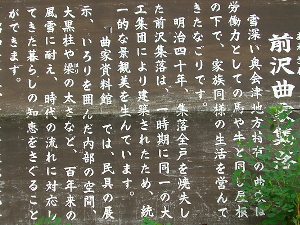 前沢曲家集落
雪深い奥会津地方特有の曲家は
労働力としての馬や牛と同じ屋根
の下で、家族同様の生活を営んで
きたなごりです。
明治四十年、集落全戸を焼失し
た前沢集落は、一時期に同一の大
工集団により建築されたため、統
一的な景観美を生んでいます。
曲家資料館では、民具の展
示、いろりを囲んだ内部の空間、
大黒柱や梁の太さなど、百年来の
風雪に耐え、時代の流れに対応し
てきた暮らしの知恵をさぐること
ができます。